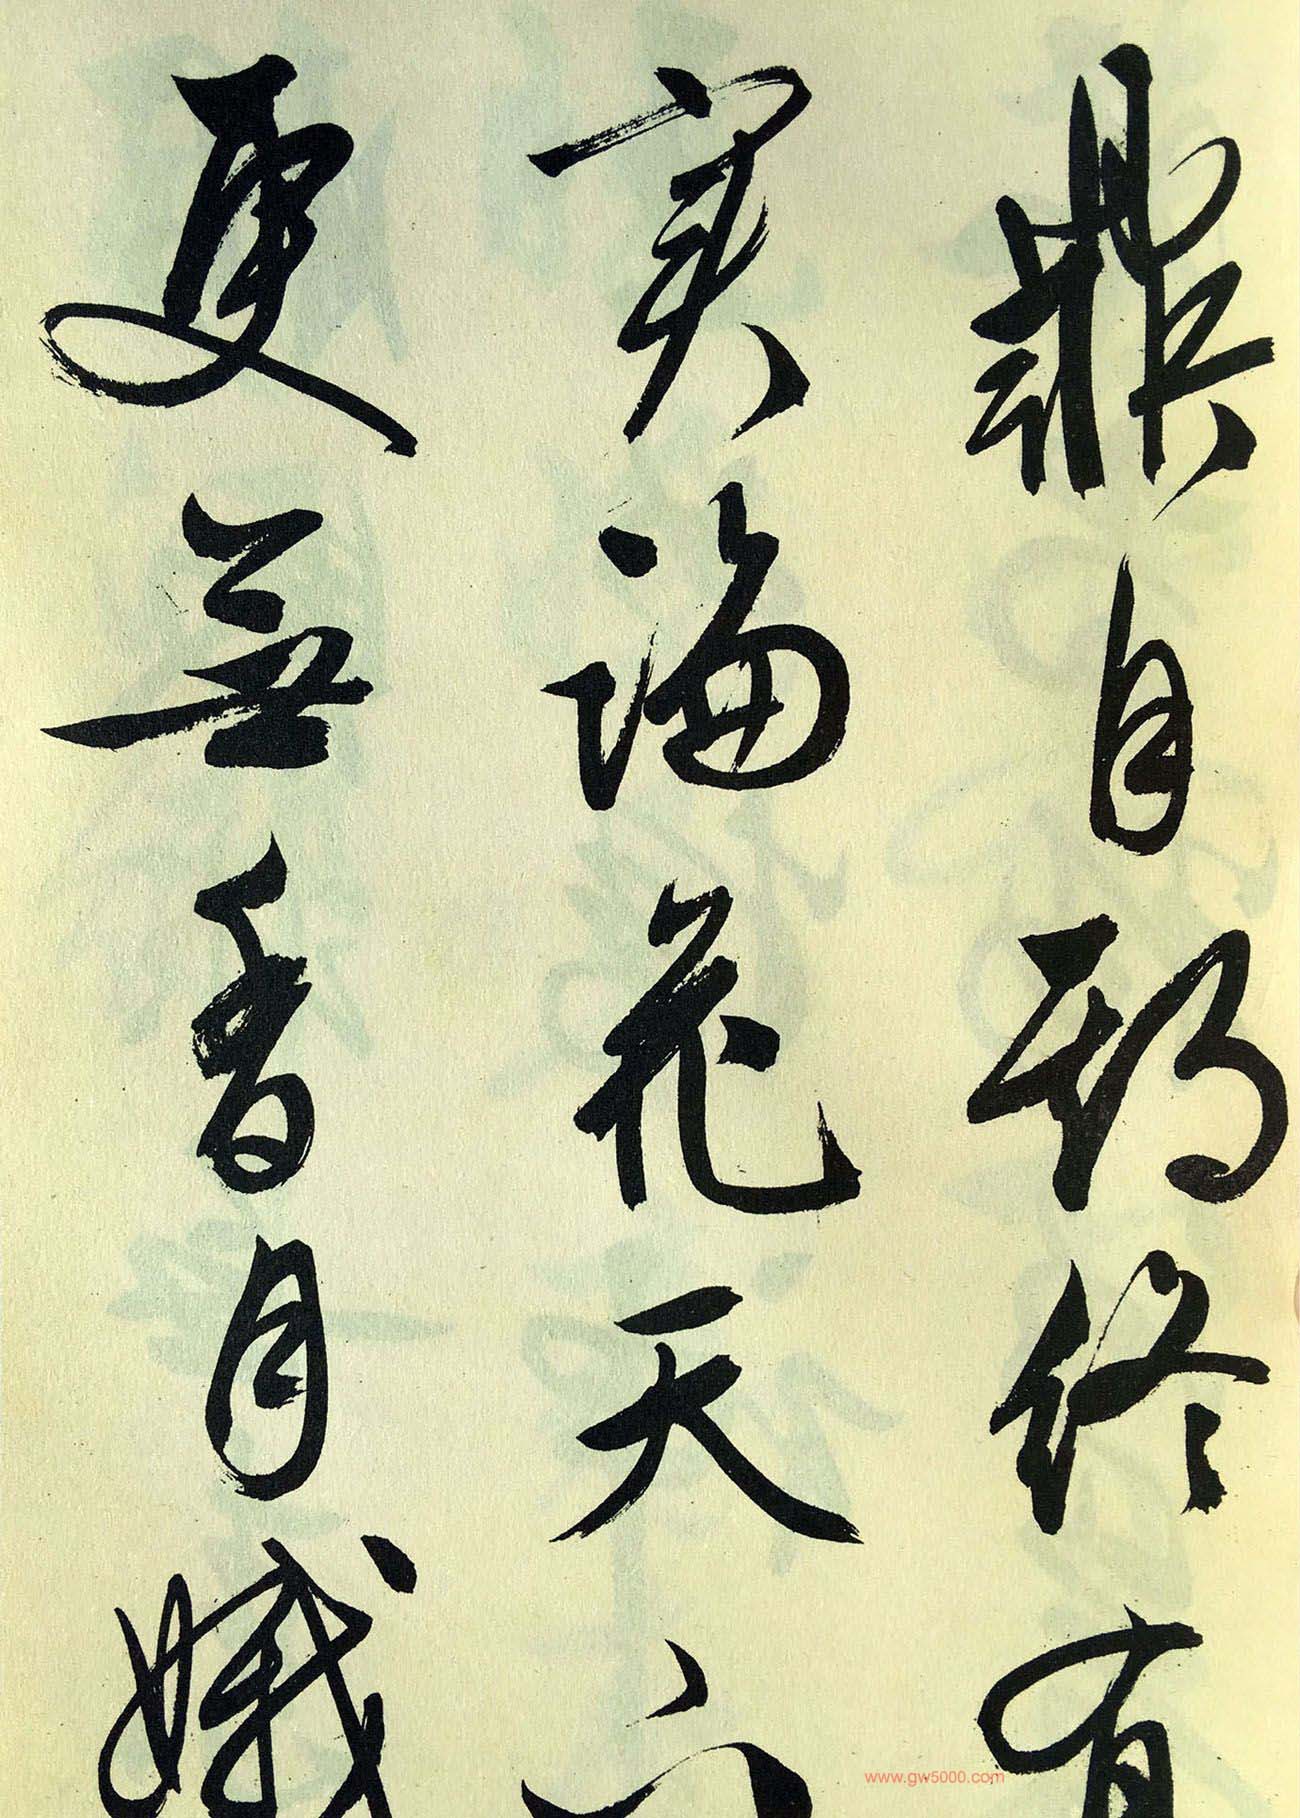 鼎自期終有
實論花天下
更無香月娥
www.gw5000.com